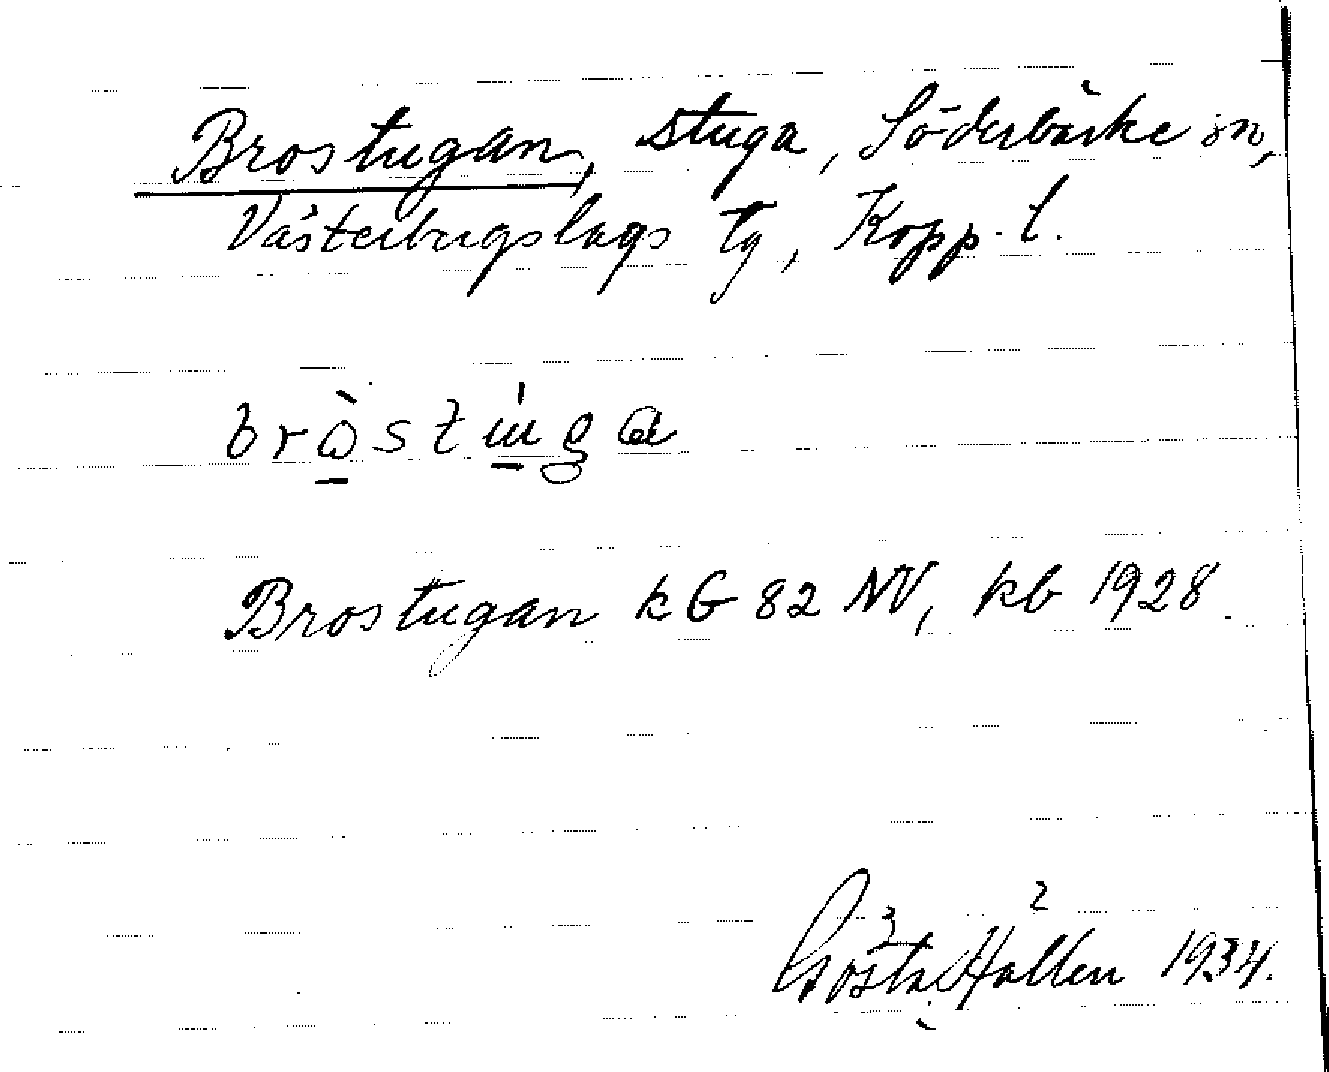 Brostugan, stuga, Söderbärke sn,
Västerbergslags tg, Kopp. l.
Brostugan kG 82 NV, kb 1928.
2
Gösta Hallen 1934.